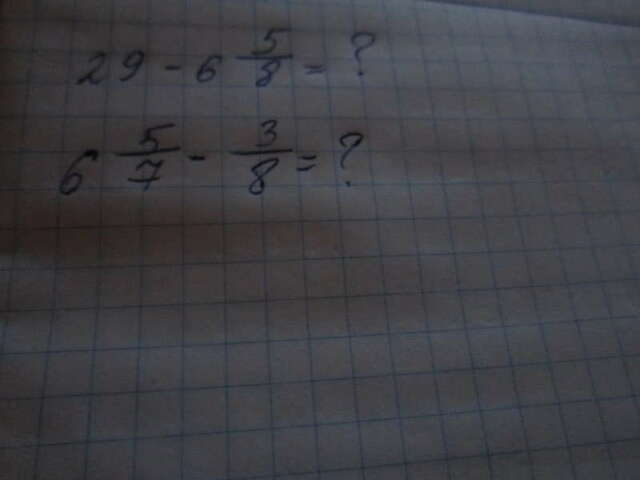 29 - 6 5/8 = ?
6 5/7 - 3/8 = ?